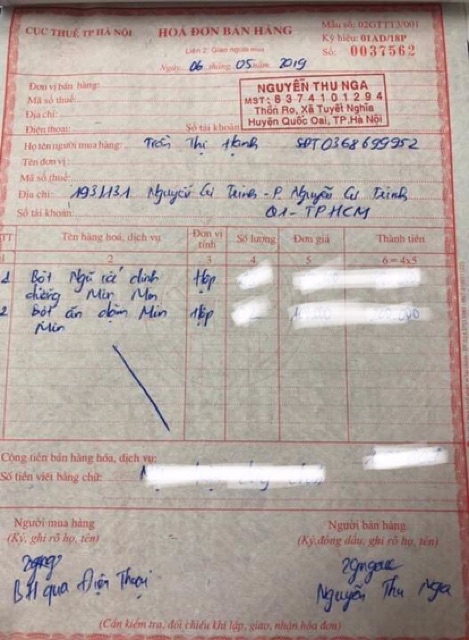 CỤC THUẾ TP HÀ NỘI
HOÁ ĐƠN BÁN HÀNG
Mẫu số: 02GTTT3/001
Ký hiệu: 01AD/18P
Liên 2: Giao người mua
Số: 0037562
Ngày 06 tháng 05 năm 2019
Đơn vị bán hàng:
Mã số thuế:
Địa chỉ:
Điện thoại: Số tài khoản
NGUYỄN THU NGA
MST: 8374101294
Thôn Ro, Xã Tuyết Nghĩa
Huyện Quốc Oai, TP.Hà Nội
Họ tên người mua hàng: Trần Thị Hạnh SĐT 0368699952
Tên đơn vị:
Mã số thuế:
Địa chỉ: 193/131 Nguyễn Cư Trinh - P. Nguyễn Cư Trinh
Số tài khoản: Q1 - TPHCM
STT Tên hàng hoá, dịch vụ Đơn vị tính Số lượng Đơn giá Thành tiền
1 2 3 4 5 6=4x5
1 Bột Ngũ cốc dinh dưỡng Min Min Hộp
2 Bột ăn dặm Min Min Hộp
Cộng tiền bán hàng hóa, dịch vụ:
Số tiền viết bằng chữ:
Người mua hàng
(Ký, ghi rõ họ, tên)
BH qua Điện Thoại
Người bán hàng
(Ký, đóng dấu, ghi rõ họ, tên)
Nguyễn Thu Nga
(Cần kiểm tra, đối chiếu khi lập, giao, nhận hóa đơn)